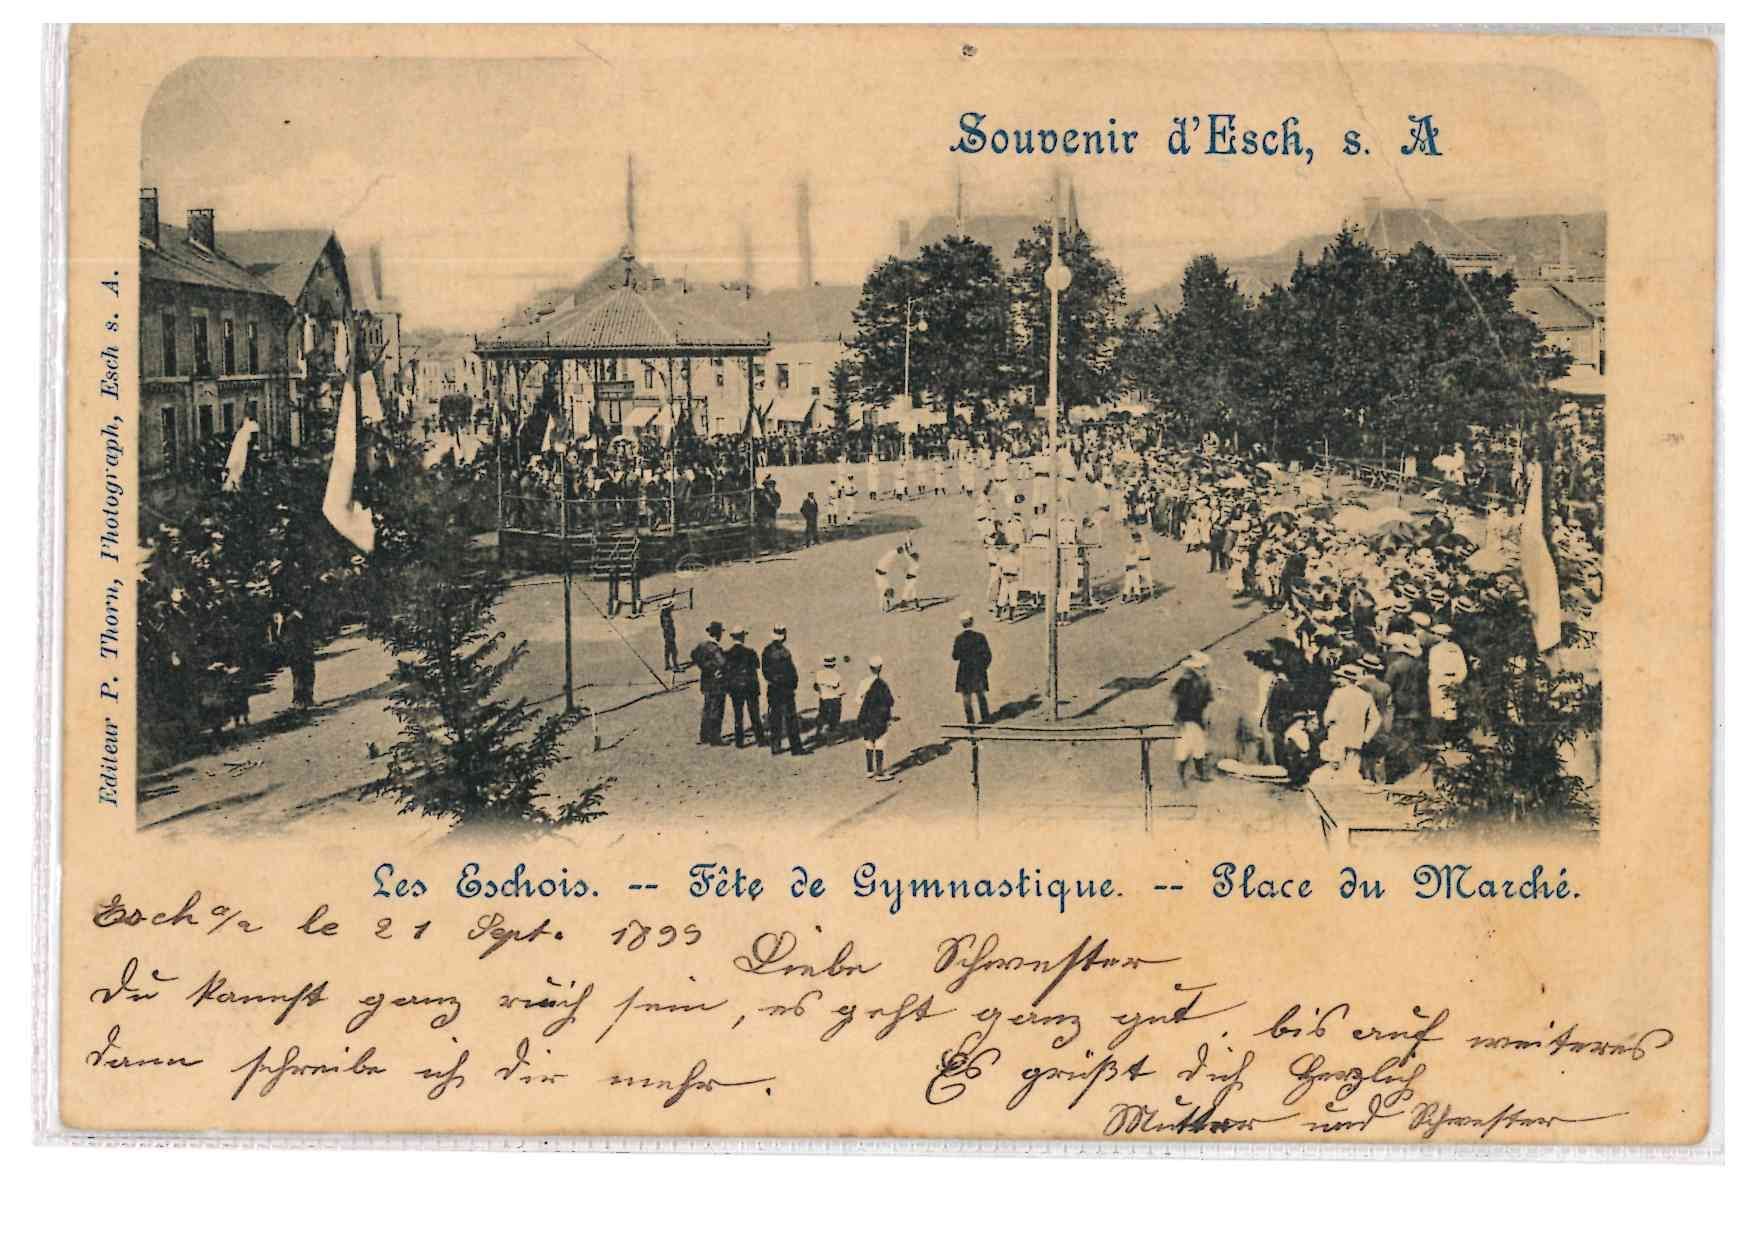 Souvenir d'Esch, s. A
Editeur P. Thorn, Photograph, Esch s. A.
Les Eschois. -- Fête de Gymnastique. -- Place du Marché.
Esch a/a le 21 Sept. 1899
Liebe Schwester
Du kannst ganz ruich sein, es geht ganz gut, bis auf weiteres
dann schreibe ich dir mehr. Es grüßt dich Herzlich
Mutter und Schwester